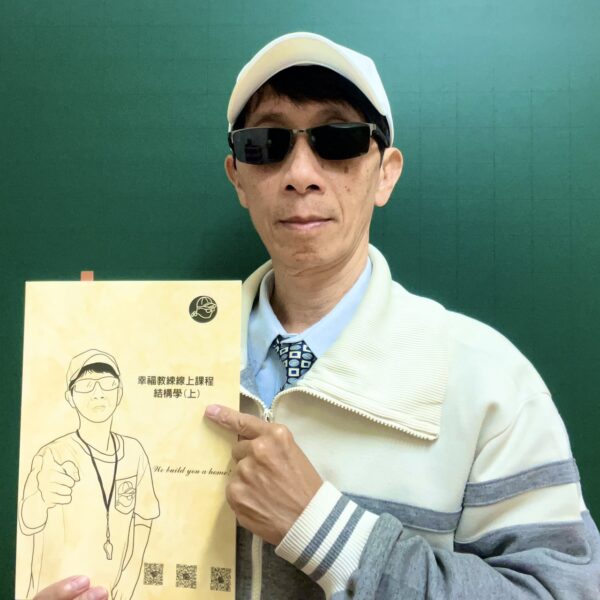 幸福教練線上課程
結構學(上)
We build you a home!